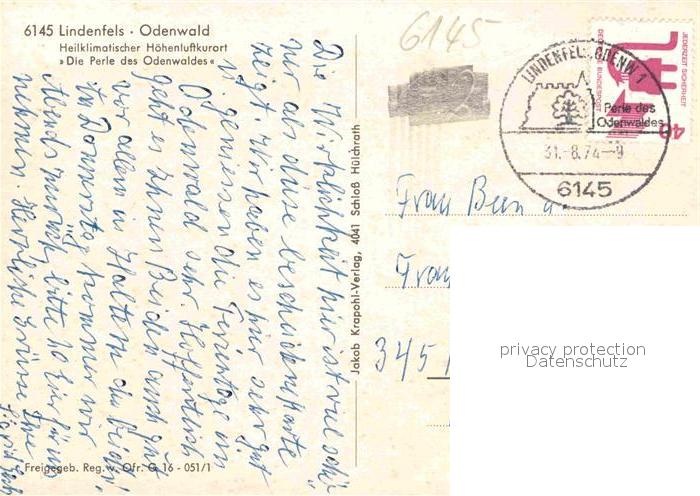 6145 Lindenfels · Odenwald
Heilklimatischer Höhenluftkurort
»Die Perle des Odenwaldes«
6145
LINDENFELS, ODENW 1
Perle des
Odenwaldes
31.-8.74--9
6145
JEDERZEIT SICHERHEIT
DEUTSCHE BUNDESPOST
40
Die Wirklichkeit hier ist viel schö
ner als diese bescheidene Karte
zeigt. Wir haben es hier sehr gut
u. geniessen die Ferientage im
Odenwald sehr. Hoffentlich
geht es Ihnen Beiden auch gut
vor allem in Haltern die beiden
Donnerstag kommen wir
Abends zurück, bitte 10 für uns
nehmen. Herzliche Grüsse Ihre
Jakob Krapohl-Verlag, 4041 Schloß Hülchrath
Frau Been u.
Frau
345
privacy protection
Datenschutz
Freigegeb. Reg. v. Ofr. G 16 - 051/1